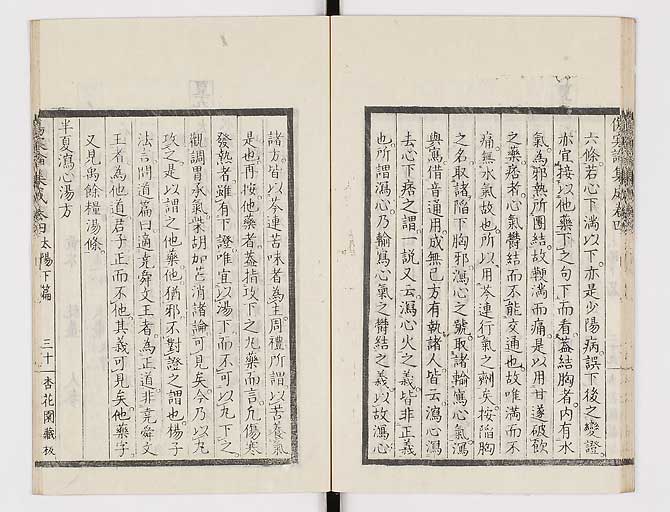 傷寒論集成卷四
六條若心下滿以下亦是少陽病誤下後之變證
亦宜接以他藥下之句下而看蓋結胸者內有水
氣為邪熱所團結故鞕滿而痛是以用甘遂破飲
之藥痞者心氣鬱結而不能交通也故唯滿而不
痛無水氣故也所以用芩連行氣之劑矣按陷胸
之名取諸陷下胸邪瀉心之號取諸輸寫心氣瀉
與寫借音通用成無已方有執諸人皆云瀉心瀉
去心下痞之謂一說又云瀉心火之義皆非正義
也所謂瀉心乃輸寫心氣之鬱結之義以故瀉心
諸方皆以芩連苦味者為主周禮所謂以苦養氣
是也再按他藥者蓋指攻下之丸藥而言凡傷寒
發熱者雖有下證唯宜以湯下而不可以丸下之
觀調胃承氣柴胡加芒消諸論可見矣今乃以丸
攻之是以謂之他藥他猶邪不對證之謂也楊子
法言問道篇曰適堯舜文王者為正道非堯舜文
王者為他道君子正而不他其義可見矣他藥字
又見禹餘糧湯條
半夏瀉心湯方
傷寒論集成卷四 太陽下篇 三十一 杏花園藏板